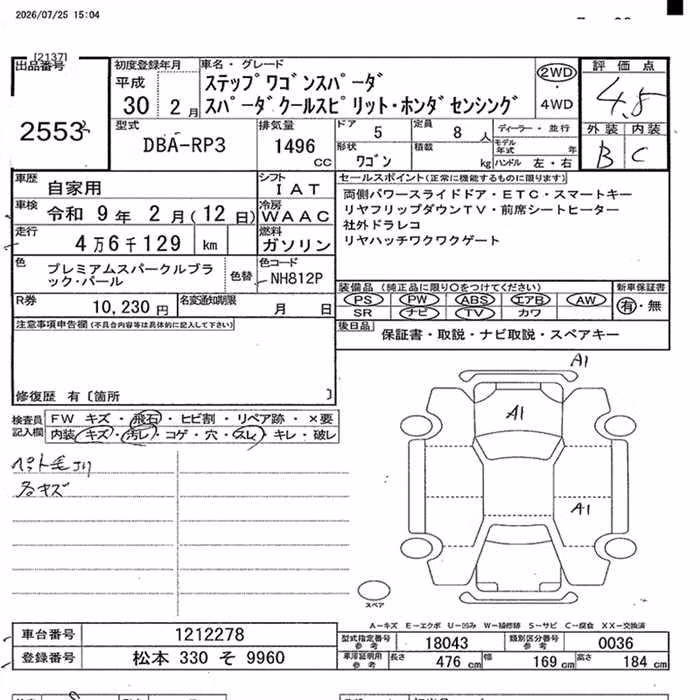 2026/07/25 15:04
[2137]
出品番号
2553
初度登録年月
平成
30 2月
車名・グレード
ステップワゴンスパーダ
スパーダクールスピリット・ホンダセンシング
2WD
・
4WD
評価点
4.5
外装 内装
B C
型式
DBA-RP3
排気量
1496 cc
ドア 5
定員 8 人
ディーラー・並行
形状 ワゴン
積載 kg
モデル年式 年
ハンドル 左・右
車歴 自家用
シフト IAT
車検 令和 9年 2月(12日)
冷房 WAAC
走行 4万6千129 km
燃料 ガソリン
色 プレミアムスパークルブラック・パール
色替
色コード NH812P
R券 10,230円
名変通知期限 月 日
セールスポイント(正常に機能するものに限ります)
両側パワースライドドア・ETC・スマートキー
リヤフリップダウンTV・前席シートヒーター
社外ドラレコ
リヤハッチワクワクゲート
装備品(純正品に限り○をつけてください)
PS PW ABS エアB AW
SR ナビ TV カワ
新車保証書
有・無
後日品 保証書・取説・ナビ取説・スペアキー
注意事項申告欄(不具合内容等は具体的に記入して下さい)
修復歴 有〔箇所 〕
検査員記入欄
FW キズ・飛石・ヒビ割・リペア跡・×要
内装・キズ・汚レ・コゲ・穴・スレ・キレ・破レ
ペット毛有り
各キズ
A1
A1
A1
スペア
A-キズ E-エクボ U-凹み W-補修跡 S-サビ C-腐食 XX-交換済
車台番号 1212278
登録番号 松本 330 そ 9960
型式指定番号参考 18043
類別区分番号参考 0036
車庫証明用参考 長さ 476 cm 幅 169 cm 高さ 184 cm